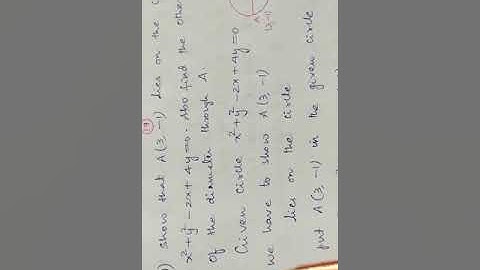 (19)
) Show that A(3, -1) lies on the
x²+y²-2x+4y=0. Also find the othe
of the diameter through A.
A
(3,-1)
Given circle x²+y²-2x+4y=0
we have to show A(3, -1)
lies on the circle
put A(3, -1) in the given circle